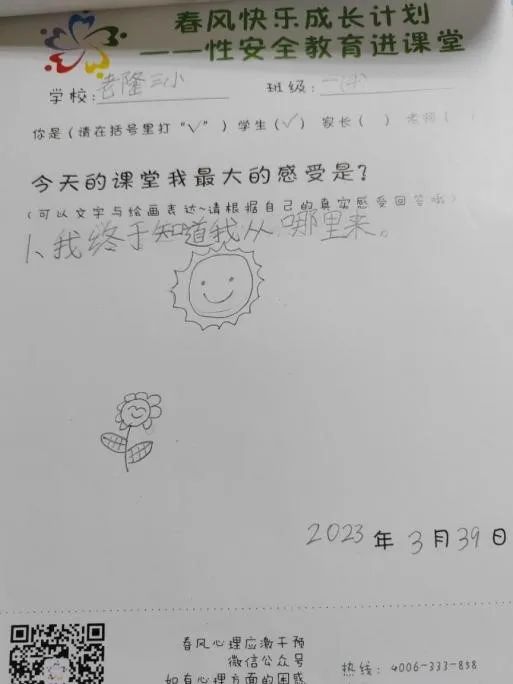 春风快乐成长计划
——性安全教育进课堂
学校：老隆三小 班级：一(4)
你是（请在括号里打“√”）学生（√） 家长（ ） 老师（ ）
今天的课堂我最大的感受是？
（可以文字与绘画表达~请根据自己的真实感受回答哦）
1、我终于知道我从哪里来。
2023年3月39日
春风心理应激干预
微信公众号
如有心理方面的困惑
热线：4006-333-858